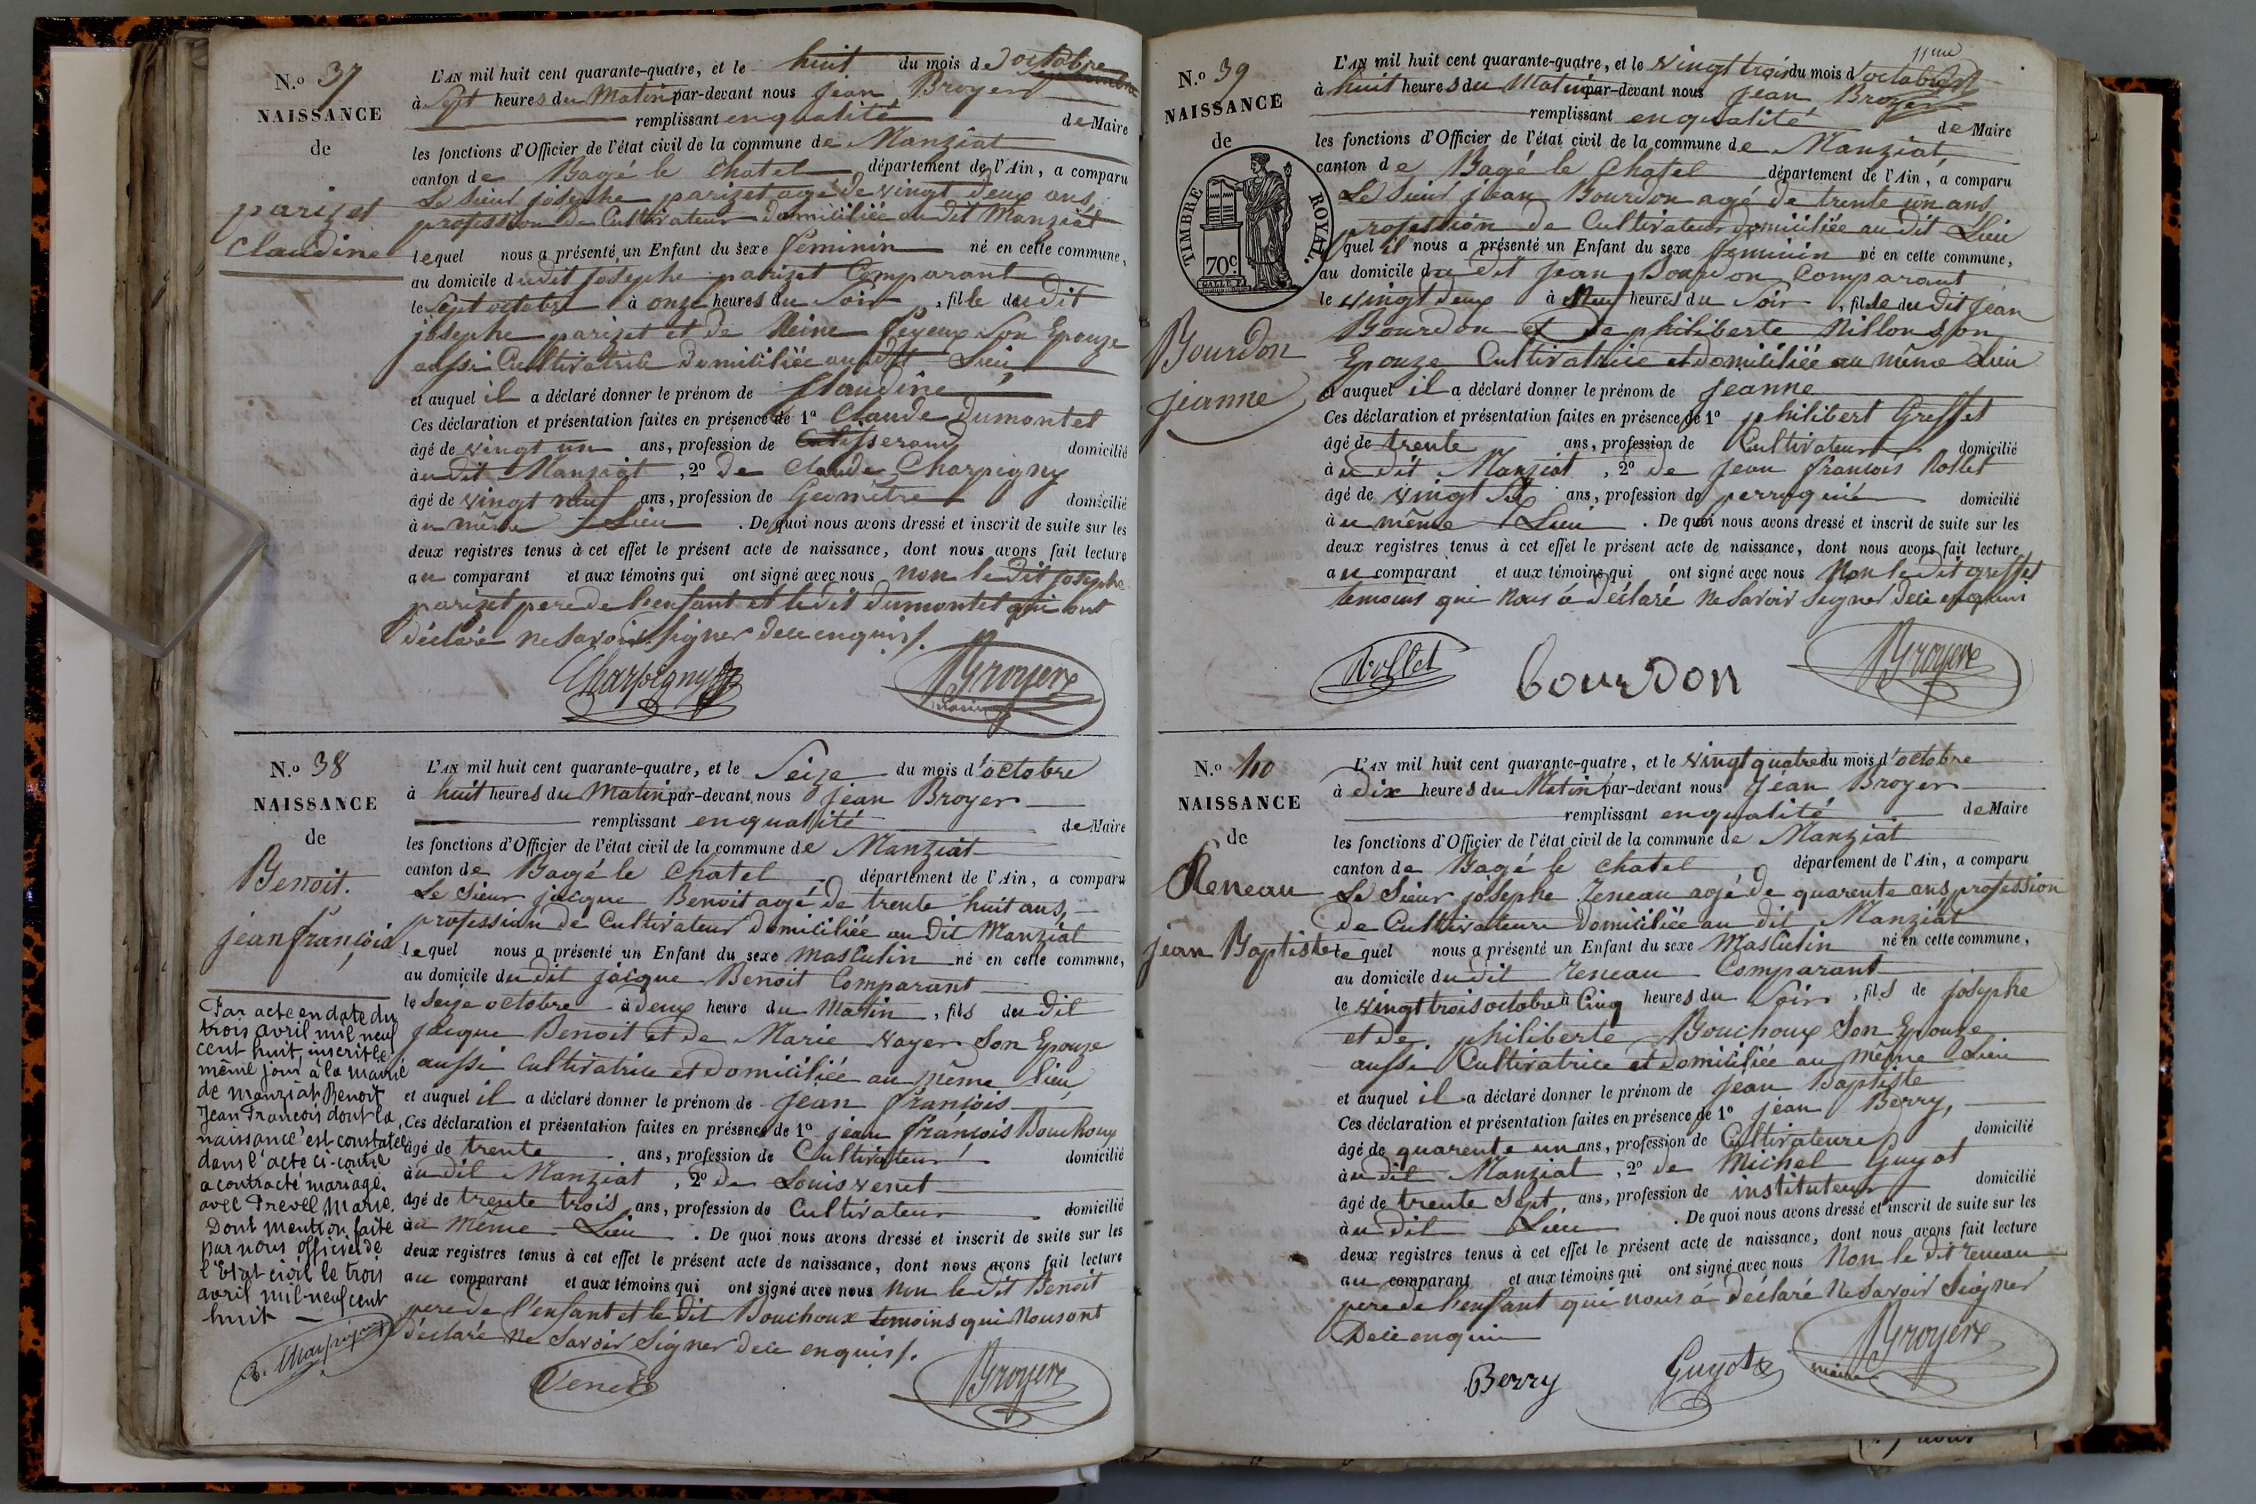 N.o 37
NAISSANCE
de
parizet
Claudine
L'AN mil huit cent quarante-quatre, et le huit du mois d octobre
à Sept heures du Matin par-devant nous Jean Broyer
remplissant en qualité de Maire
les fonctions d'Officier de l'état civil de la commune de Manziat
canton de Bagé le Chatel département de l'Ain, a comparu
Le Sieur josephe parizet agé de vingt deux ans,
profession de Cultivateur domiciliée au dit Manziat
lequel nous a présenté un Enfant du sexe féminin né en cette commune,
au domicile du dit josephe parizet Comparant
le Sept octobre à onze heures du Soir, fille du dit
josephe parizet et de Reine Feyeux Son Epouze
aussi Cultivatrice domiciliée au dit Lieu
et auquel il a déclaré donner le prénom de Claudine
Ces déclaration et présentation faites en présence de 1o Claude Dumontet
âgé de vingt un ans, profession de tisserand domicilié
à u dit Manziat, 2o de Claude Charpigny
âgé de vingt neuf ans, profession de Géomètre domicilié
à u même Lieu. De quoi nous avons dressé et inscrit de suite sur les
deux registres tenus à cet effet le présent acte de naissance, dont nous avons fait lecture
au comparant et aux témoins qui ont signé avec nous non le dit josephe
parizet pere de l'enfant et le dit Dumontet qui ont
déclaré ne Savoir Signer de ce enquis /.
Charpigny Broyer
maire
N.o 38
NAISSANCE
de
Benoit.
jean françois
Par acte en date du
trois avril mil neuf
cent huit, inscrit le
même jour à la mairie
de Manziat Benoit
Jean François dont la
naissance est constatée
dans l'acte ci-contre
a contracté mariage
avec Prevel Marie.
Dont mention faite
par nous officier de
l'Etat civil le trois
avril mil-neuf cent
huit
L'AN mil huit cent quarante-quatre, et le Seize du mois d'octobre
à huit heures du Matin par-devant nous Jean Broyer
remplissant en qualité de Maire
les fonctions d'Officier de l'état civil de la commune de Manziat
canton de Bagé le Chatel département de l'Ain, a comparu
Le Sieur jacque Benoit agé de trente huit ans,
profession de Cultivateur domiciliée au dit Manziat
lequel nous a présenté un Enfant du sexe masculin né en cette commune,
au domicile du dit jacque Benoit Comparant
le Seize octobre à deux heure du Matin, fils du dit
jacque Benoit et de Marie Vayer Son Epouze
aussi Cultivatrice et domiciliée au même lieu
et auquel il a déclaré donner le prénom de Jean françois
Ces déclaration et présentation faites en présence de 1o jean françois Bouchoux
âgé de trente ans, profession de Cultivateur domicilié
à u dit Manziat, 2o de Louis Venet
âgé de trente trois ans, profession de Cultivateur domicilié
à u même Lieu. De quoi nous avons dressé et inscrit de suite sur les
deux registres tenus à cet effet le présent acte de naissance, dont nous avons fait lecture
au comparant et aux témoins qui ont signé avec nous non le dit Benoit
pere de l'enfant et le dit Bouchoux temoins qui Nous ont
déclaré Ne Savoir Signer de ce enquis /.
Venet Broyer
11me
N.o 39
NAISSANCE
de
TIMBRE ROYAL.
70c.
Bourdon
jeanne
L'AN mil huit cent quarante-quatre, et le vingt trois du mois d'octobre
à huit heures du Matin par-devant nous Jean Broyer
remplissant en qualité de Maire
les fonctions d'Officier de l'état civil de la commune de Manziat,
canton de Bagé le Chatel département de l'Ain, a comparu
Le Sieur jean Bourdon agé de trente un ans,
profession de Cultivateur domiciliée au dit Lieu
quel il nous a présenté un Enfant du sexe feminin né en cette commune,
au domicile du dit Jean Bourdon Comparant
le vingt deux à Neuf heures du Soir, fille du dit Jean
Bourdon et de philiberte Nillon Son
Epouze Cultivatrice et domiciliée au même Lieu
et auquel il a déclaré donner le prénom de Jeanne
Ces déclaration et présentation faites en présence de 1o philibert Greffet
âgé de trente ans, profession de Cultivateur domicilié
à u dit Manziat, 2o de Jean françois Rollet
âgé de vingt Six ans, profession de perruquié domicilié
à u même Lieu. De quoi nous avons dressé et inscrit de suite sur les
deux registres tenus à cet effet le présent acte de naissance, dont nous avons fait lecture
au comparant et aux témoins qui ont signé avec nous Non le dit Greffet
temoins qui Nous a déclaré Ne Savoir Seigner de ce enquis
Rollet bourdon Broyer
N.o 40
NAISSANCE
de
Reneau
jean Baptiste
L'AN mil huit cent quarante-quatre, et le vingt quatre du mois d'octobre
à dix heures du Matin par-devant nous Jean Broyer
remplissant en qualité de Maire
les fonctions d'Officier de l'état civil de la commune de Manziat
canton de Bagé le Chatel département de l'Ain, a comparu
Le Sieur josephe Reneau agé de quarente ans, profession
de Cultivateur domiciliée au dit Manziat
le quel nous a présenté un Enfant du sexe Masculin né en cette commune,
au domicile du dit Reneau Comparant
le vingt trois octobre à Cinq heures du Soir, fils de josephe
et de philiberte Bouchoux Son Epouze
aussi Cultivatrice et domiciliée au même Lieu
et auquel il a déclaré donner le prénom de Jean Baptiste
Ces déclaration et présentation faites en présence de 1o jean Berry,
âgé de quarente un ans, profession de Cultivateur domicilié
à u dit Manziat, 2o de Michel Guyot
âgé de trente Sept ans, profession de instituteur domicilié
à u dit Lieu. De quoi nous avons dressé et inscrit de suite sur les
deux registres tenus à cet effet le présent acte de naissance, dont nous avons fait lecture
au comparant et aux témoins qui ont signé avec nous Non le dit Reneau
pere de l'enfant qui nous a déclaré Ne Savoir Seigner
De ce enquis
Berry Guyot Broyer
maire